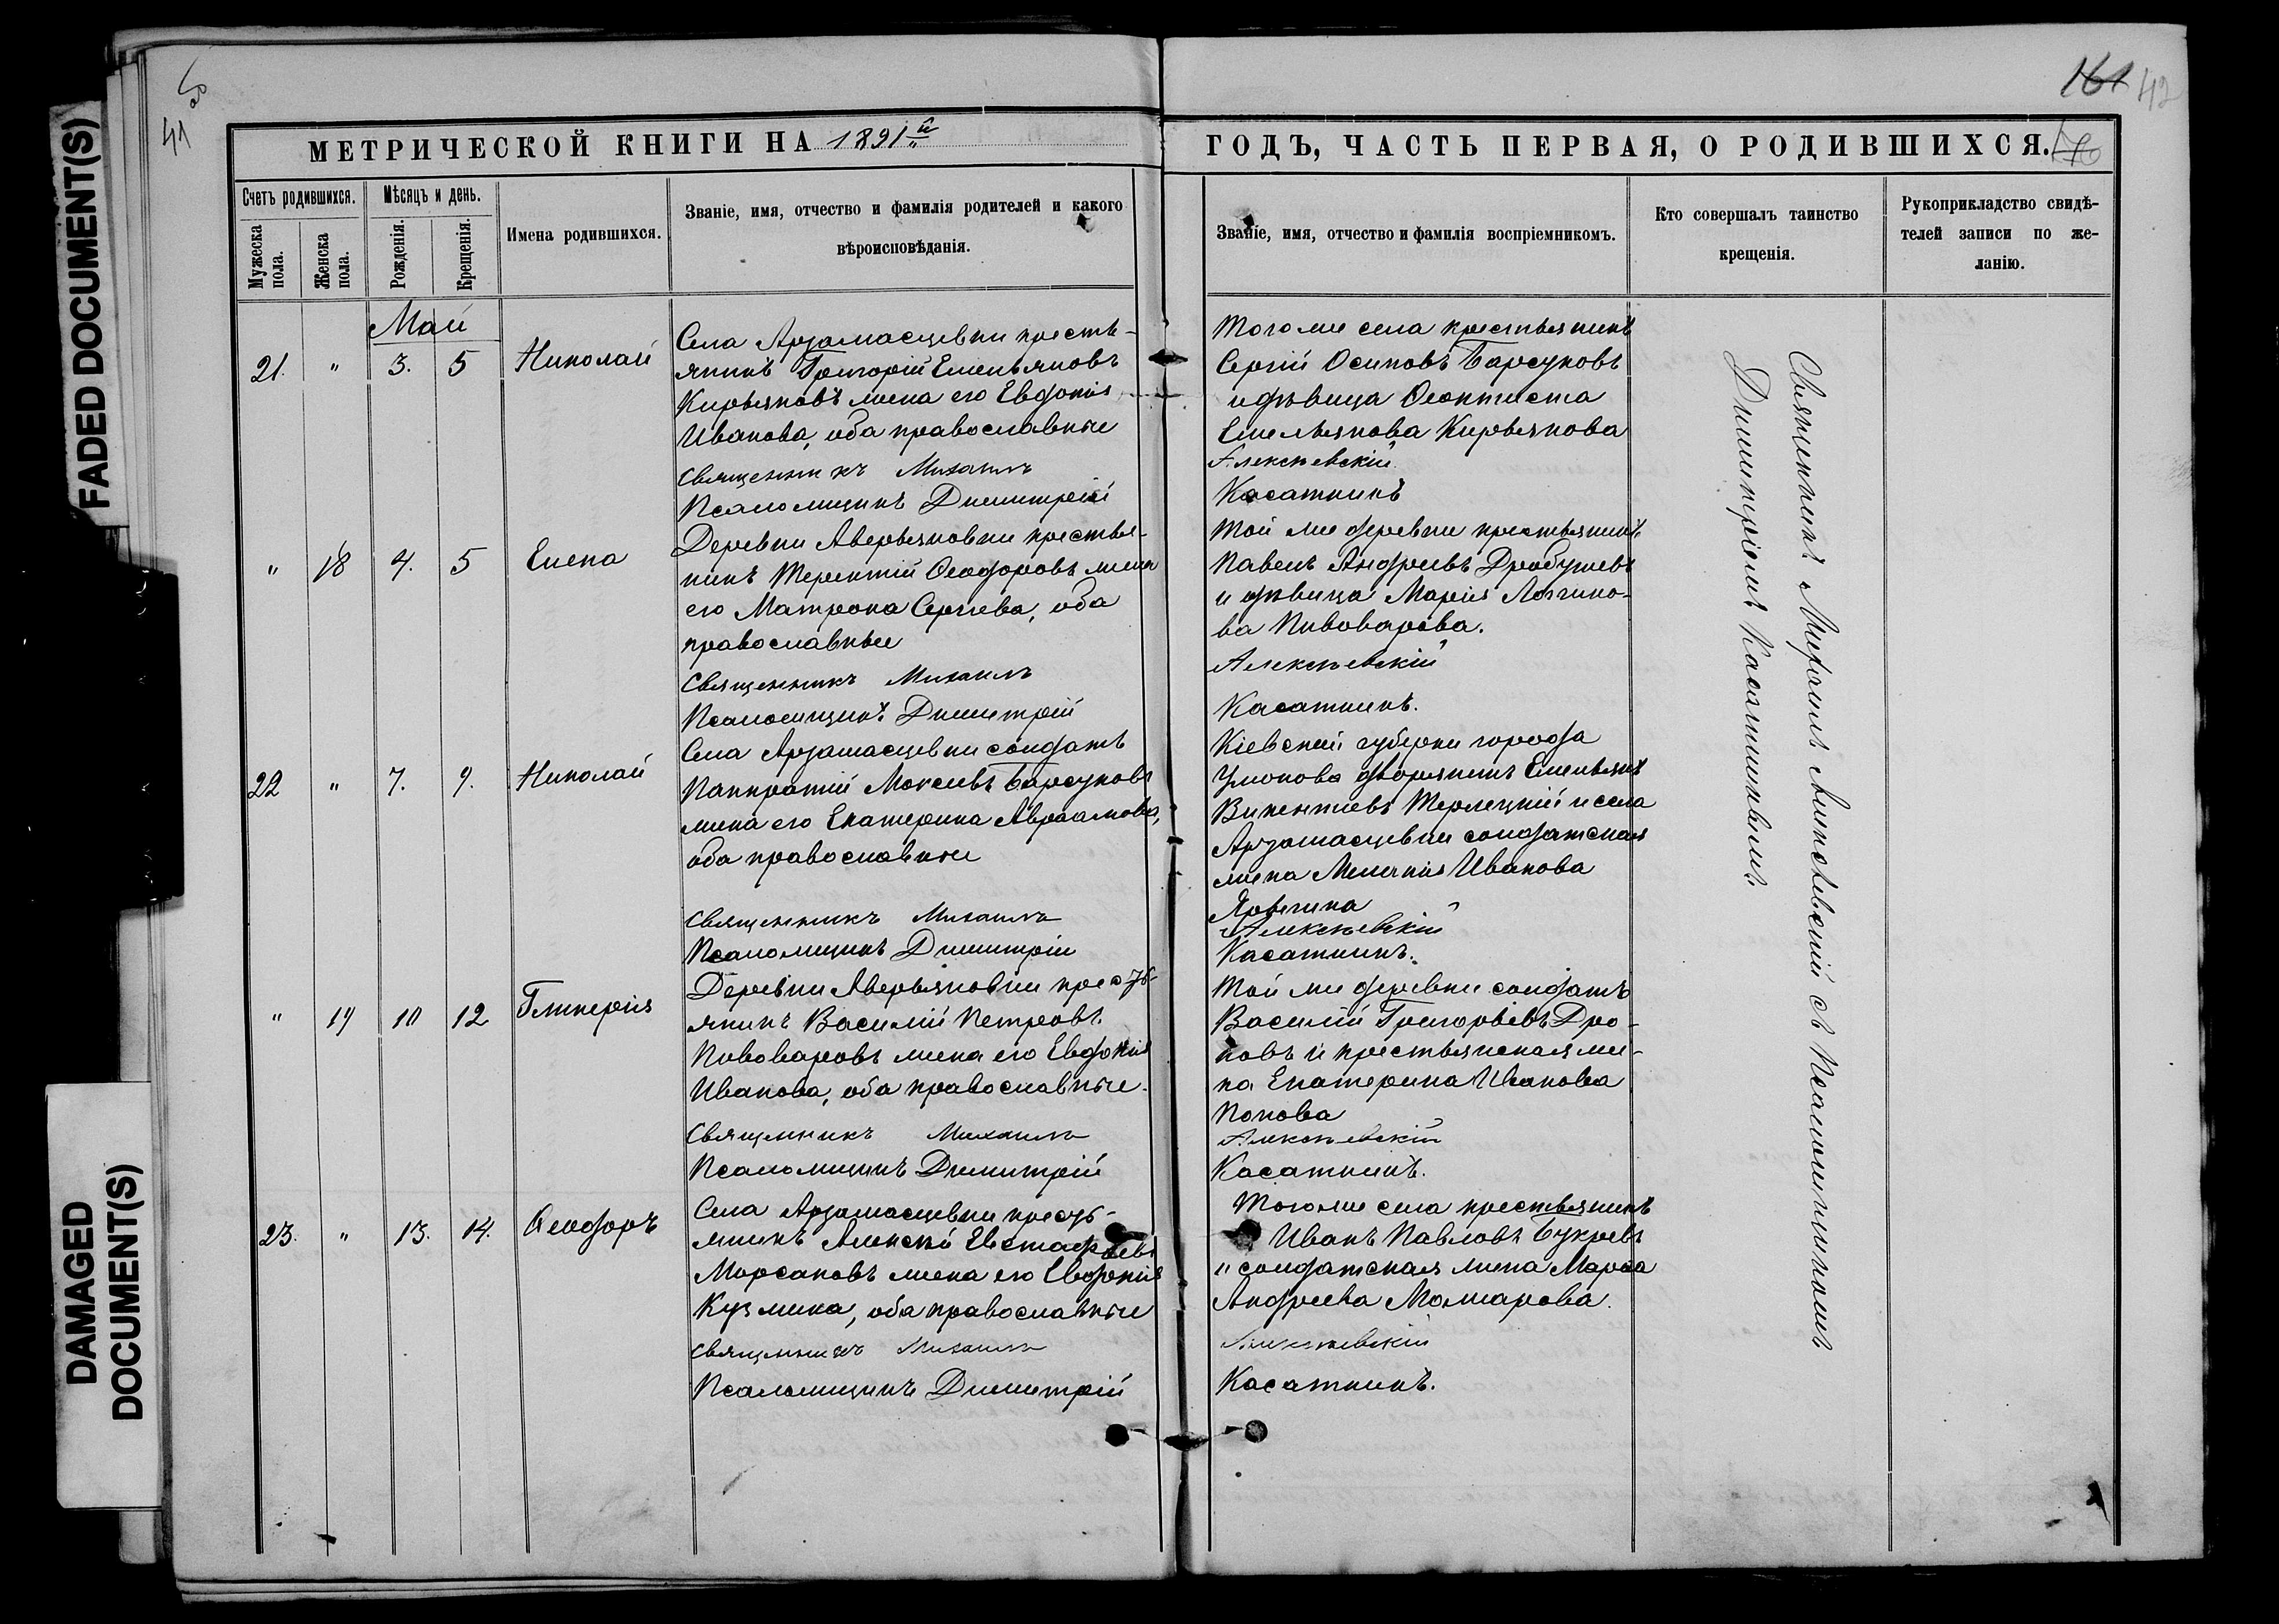 FADED DOCUMENT(S)
DAMAGED
DOCUMENT(S)
41
161 42
МЕТРИЧЕСКОЙ КНИГИ НА 1891й
ГОДЪ, ЧАСТЬ ПЕРВАЯ, О РОДИВШИХСЯ.
Счетъ родившихся.
Мужеска пола.
Женска пола.
Мѣсяцъ и день.
Рожденія.
Крещенія.
Имена родившихся.
Званіе, имя, отчество и фамилія родителей и какого
вѣроисповѣданія.
Званіе, имя, отчество и фамилія воспріемникомъ.
Кто совершалъ таинство
крещенія.
Рукоприкладство свидѣ-
телей записи по же-
ланію.
Май
21. " 3. 5 Николай
Села Арзамасцевки кресть-
янинъ Григорій Емельяновъ
Кирьяновъ жена его Евдокія
Иванова, оба православные
Священникъ Михаилъ
Псаломщикъ Димитрій
Того же села крестьянинъ
Сергій Осиповъ Барсуковъ
и дѣвица Ѳеоктиста
Емельянова Кирьянова
Алексѣевскій
Касаткинъ
" 18 4. 5 Елена
Деревни Аверьяновки крестья-
нинъ Терентій Ѳеодоровъ жена
его Матрона Сергѣева, оба
православные
Священникъ Михаилъ
Псаломщикъ Димитрій
Той же деревни крестьянинъ
Павелъ Андреевъ Дробушевъ
и дѣвица Марія Логгино-
ва Пивоварова.
Алексѣевскій
Касаткинъ.
22 " 7. 9. Николай
Села Арзамасцевки солдатъ
Панкратій Моисеевъ Барсуковъ
жена его Екатерина Авраамова,
оба православные
Священникъ Михаилъ
Псаломщикъ Димитрій
Кіевской губерни города
дворянинъ Емельянъ
Викентіевъ Терлецкій и села
Арзамасцевки солдатская
жена Меланія Иванова
Алексѣевскій
Касаткинъ.
" 19 10 12 Гликерія
Деревни Аверьяновки крест-
янинъ Василій Петровъ
Пивоваровъ жена его Евдокія
Иванова, оба православные.
Священникъ Михаилъ
Псаломщикъ Димитрій
Той же деревни солдатъ
Василій Григорьевъ Дро-
новъ и крестьянская же-
на Екатерина Иванова
Попова
Алексѣевскій
Касаткинъ.
23. " 13. 14. Ѳеодоръ
Села Арзамасцевки кресть-
янинъ Алексѣй Евстафьевъ
Морсаковъ жена его Евдокія
Кузмина, оба православные
Священникъ Михаилъ
Псаломщикъ Димитрій
Того же села крестьянинъ
Иванъ Павловъ Букревъ
и солдатская жена Марѳа
Андреева Можарова.
Алексѣевскій
Касаткинъ.
Священникъ Михаилъ Алексѣевскій съ Псаломщикомъ
Димитріемъ Касаткинымъ.